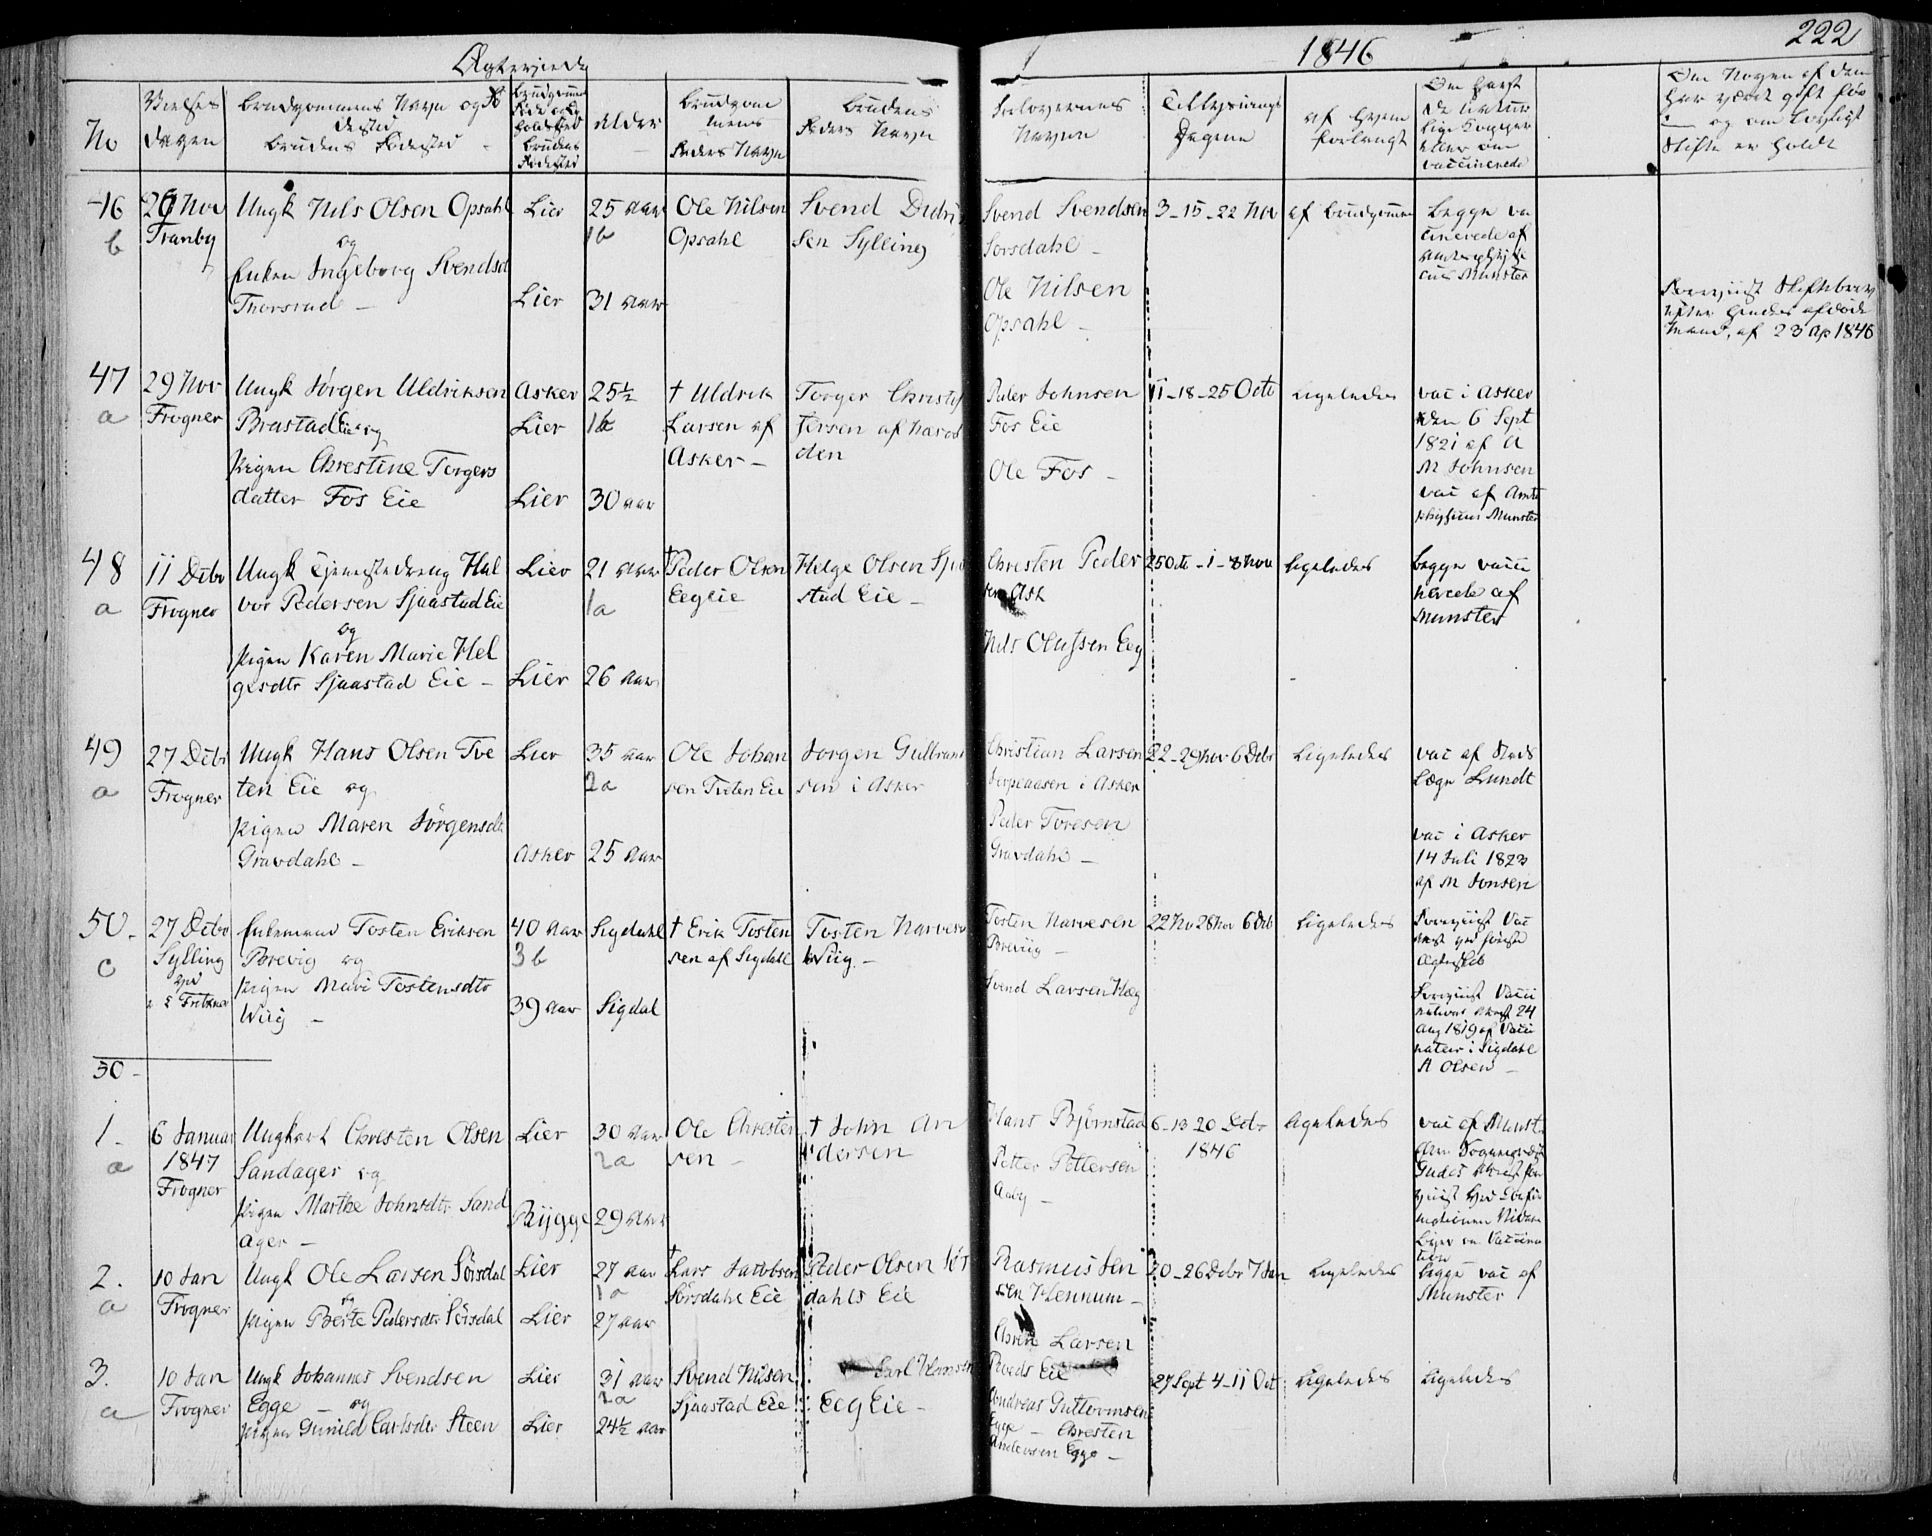 Ægteviede
1846
222
No
Vielses
Dagen
Brudgommens Navn og
Brudens Fødested
Brudgommens
Føde og Op
holdssted
Brudens
Fødested
Alder
Brudgom
mens
Faders Navn
Brudens
Faders Navn
Forlovernes
Navne
Tillysnings
Dagene
af Hvem
forlangt
Om havt
de naturlige Kopper
eller om
vaccinerede
Om Nogen af dem
har været gift før
og om lovligt
Skifte er holdt
46
b
26 Nov
Tranby
Ungk Nils Olsen Opsahl
og
Enken Ingeborg Svendsd
Thorsrud –
Lier
Lier
25 aar
1b
31 aar
Ole Nilsen
Opsahl
Svend Didri
sen Sylling
Svend Svendsen
Sørsdahl –
Ole Nilsen
Opsahl –
3–15–22 Nov
af Brudgommen
Begge va
cinerede af
Munster
Foreviist Skiftebrev
efter hendes afdøde
Mand, af 23 Ap 1846
47
a
29 Nov
Frogner
Ungk Jørgen Uldriksen
Brastad Eie og
Pigen Christine Torgers
datter Fos Eie
Asker
Lier
Lier
25½
30 aar
† Uldrik
Larsen af
Asker –
Torger Christof
fersen af
Peder Johnsen
Fos Eie
Ole Fos –
11–18–25 Octo
Ligeledes
vac i Asker
den 6 Sept
1821 af A
M Johnsen
vac af Amts
physicus Munster
48
a
11 Debr
Frogner
Ungk Tjenestedreng Hal
vor Pedersen Sjaastad Eie
og
Pigen Karen Marie Hel
gesdtr Sjaastad Eie –
Lier
Lier
21 aar
1a
26 aar
† Peder Olsen
Eeg Eie
Helge Olsen Sjaa
stad Eie –
Christen Peder
sen Ask
Nils Olufsen Eeg
25 Octo – 1 – 8 Nov
Ligeledes
Begge vacci
nerede af
Munster
49
a
27 Debr
Frogner
Ungk Hans Olsen Tve
ten Eie og
Pigen Maren Jørgensdtr
Gravdahl –
Lier
Asker
35 aar
2a
25 aar
Ole Johan
sen Tveten Eie
Jørgen Gulbrand
sen i Asker
Christian Larsen
i Asker
Peder Toresen
Gravdahl –
22–29 Nov 6 Debr
Ligeledes
vac af Stads
Læge Lundt
vac i Asker
14 Juli 1823
af M Jonsen
50 –
c
27 Debr
Sylling
Enkemand Tosten Eriksen
Brevig og
Pigen Mari Tostensdtr
Wiig –
40 aar
3b
39 aar
Sigdahl
Sigdal
† Erik Tosten
sen af Sigdahl
Tosten Narvesen
Wiig –
Tosten Narvesen
Breviig –
Svend Larsen Hæg
22 No 28 Nov 6 Deb
Ligeledes
Foreviist Vac
Att ved første
Ægteskab
Foreviist Vacci
nations Attest 24
Aug 1819 af Vacci
nateur i Sigdahl
A Olsen –
50 –
1 –
a
6 Januar
1847
Frogner
Ungkarl Christen Olsen
Sandager og
Pigen Marthe Johnsdtr Sand
ager –
Lier
Rygge
30 aar
2a
29 aar
Ole Christen
sen –
† John An
dersen
Hans Bjørnstad
Petter Pettersen
Aaby –
6–13 20 Debr
1846
Ligeledes
vac af Munst
2.
a
10 Jan
Frogner
Ungk Ole Larsen Sørsdal
og
Pigen Berte Pedersdtr Sørsdal
Lier
Lier
27 aar
1a
27 aar
† Lars Jacobsen
Sørsdahl Eie
Peder Olsen Sørs
dahls Eie
Rasmus Jen
sen Hennum –
Larsen
20–26 Debr 7 Jan
Ligeledes
Begge vac af
Munster
3.
a
10 Jan
Frogner
Ungk Johannes Svendsen
Egge – og
Pigen Gunild Carlsdtr Steen
Lier
Lier
31 aar
2a
24½ aar
Svend Nilsen
Sjaastad Eie
Carl
Eeg Eie –
Roeds Eie
Andreas Guttormsen
Egge – Christen
Andersen Egge –
27 Sept 4–11 Oct
Ligeledes
Ligeledes